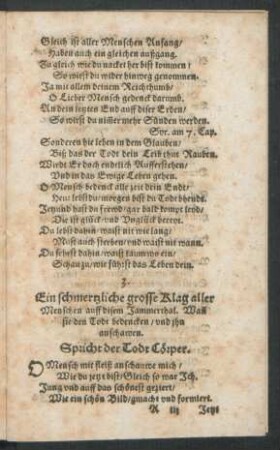 Gleich ist aller Menschen Anfang/
Haben auch ein gleichen außgang.
Zu gleich wie du nacket her bist kommen/
So wirst du wider hinweg genommen.
Ja mit allem deinem Reichthumb/
O Lieber Mensch gedenck darumb.
An dein letzten End auff diser Erden/
So wirst du nim̃er mehr Sünden werden.
Syr. am 7. Cap.
Sonderen hie leben in dem Glauben/
Biß das der Todt dein Leib thut Rauben.
Wirdt Er doch endtlich Aufferstehen/
Vnd in das Ewige Leben gehen.
O Mensch bedenck alle zeit dein Endt/
Heut lebst du/morgen bist du Todt behendt.
Jetzund hast du frewd/gar bald kompt leyd/
Die ist glück/vnd Vnglück bereit.
Du lebst dahin/waist nit wie lang/
Must auch sterben/vnd waist nit wann.
Du fehrst dahin/waist kaum wo ein/
Schau zu/wie führst das Leben dein.
3.
Ein schmertzliche grosse Klag aller
Menschen auff disem Jammerthal. Wañ
sie den Todt bedencken/vnd jhn
anschawen.
Spricht der Todt Cörper.
O Mensch mit fleiß anschauwe mich/
Wie du jetzt bist/Gleich so war Ich.
Jung vnd auff das schönest geziert/
Wie ein schön Bild/gmacht vnd formiert.
R iij Jetzt